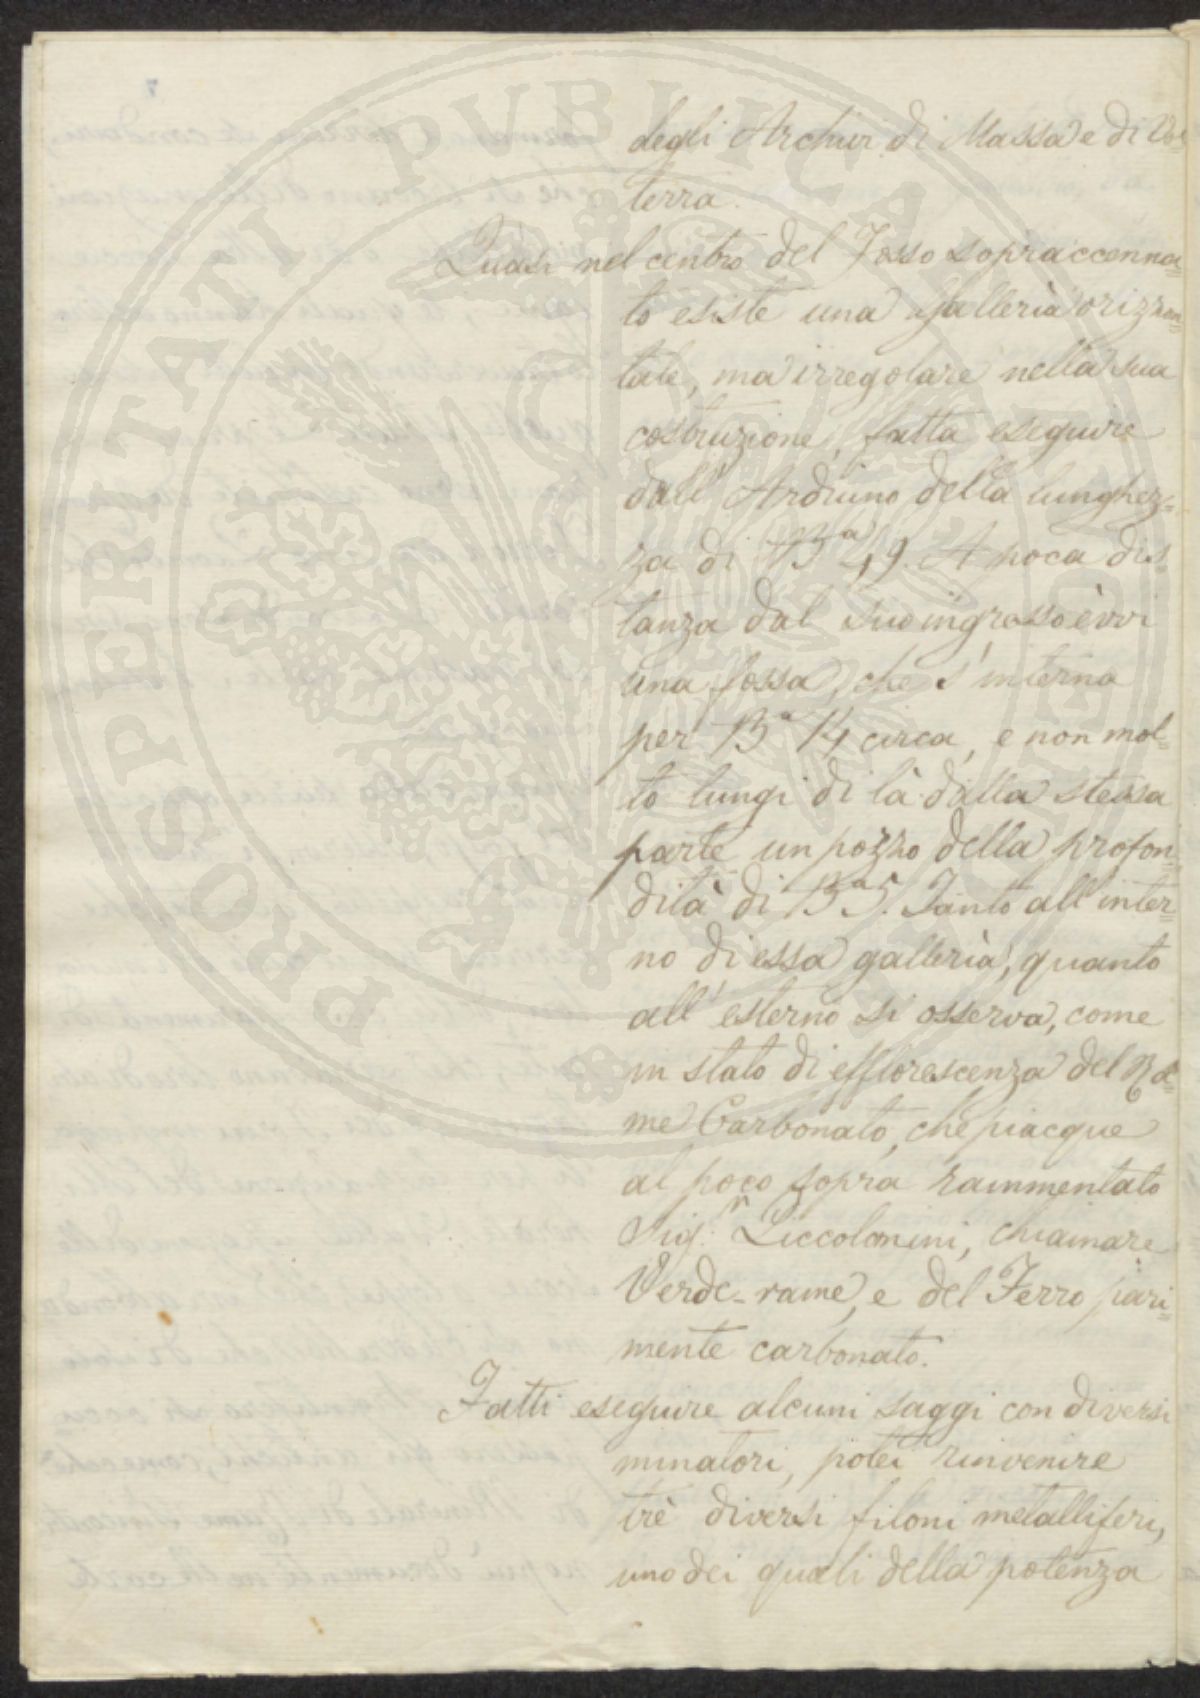 degli Archivi di Massa e di Vol=
terra.
Quasi nel centro del Fosso sopraccenna=
to esiste una Galleria orizzon=
tale, ma irregolare nella sua
costruzione, fatta eseguire
dall' Arduino della lunghez=
za di B.a 49. A poca dis=
tanza dal suo ingresso èvvi
una fossa, che s' interna
per B.a 14 circa, e non mol=
to lungi di là dalla stessa
parte un pozzo della profon=
dità di B.a 5. Tanto all' inter=
no di essa galleria, quanto
all' esterno si osserva, come
in stato di efflorescenza del Ra=
me Carbonato, che piacque
al poco sopra rammentato
Sig.r Piccolomini, chiamare
Verde-rame, e del Ferro pari=
mente carbonato.
Fatti eseguire alcuni saggi con diversi
minatori, potei rinvenire
trè diversi filoni metalliferi,
uno dei quali della potenza
PROSPERITATI PVBLICAE